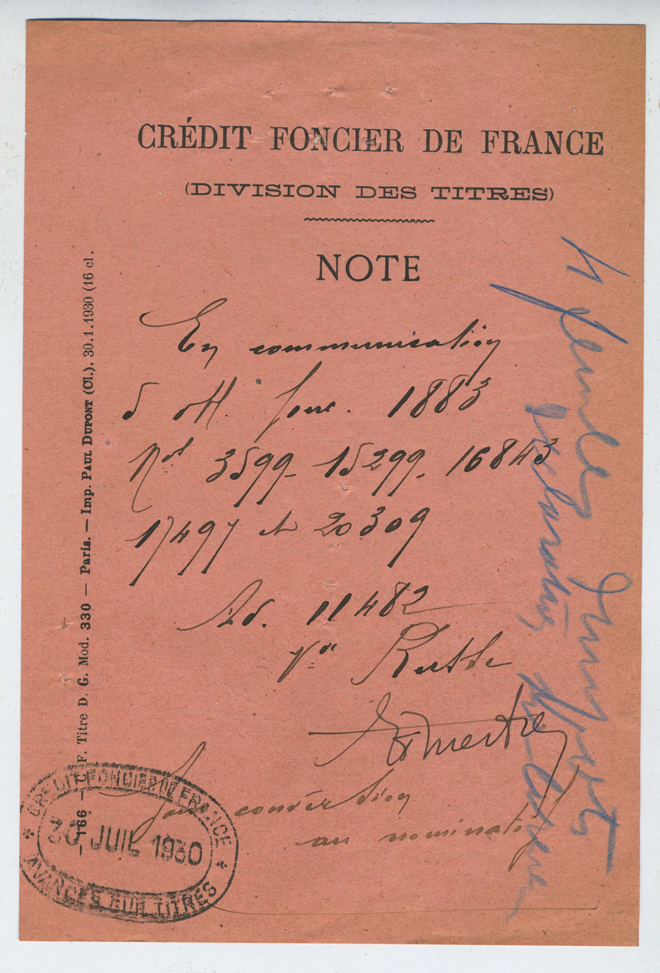 CRÉDIT FONCIER DE FRANCE
(DIVISION DES TITRES)
NOTE
En communication
5 obl. fonc. 1883
Nos 3599 - 15299 - 16843
17497 et 20309
Ad. 11482
Vve
Pour conversion
au nominatif
4 feuilles
— 166 — F. Titre D. G. Mod. 330 — Paris. — Imp. PAUL DUPONT (Cl.). 30.1.1930 (16 cl.
CREDIT FONCIER DE FRANCE
30 JUIL 1930
AVANCES SUR TITRES